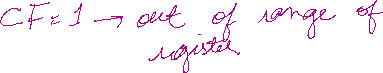 CF=1 → out of range of
register